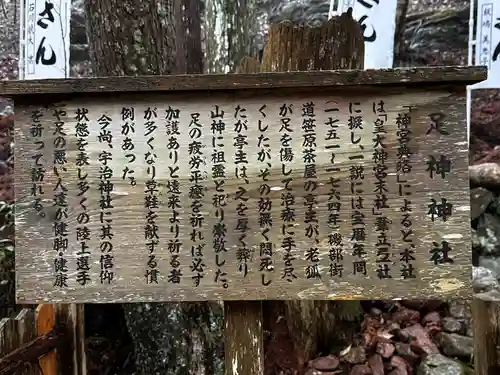 足神神社
「神宮典洛」によると、本社
は「皇大神宮末社」葦立𢎭社
に擬し、一説には宝暦年間
(一七五一〜一七六四年)磯部街
道笹原茶屋の亭主が、老狐
が足を傷して治療に手を尽
くしたがその効無く悶死し
たが亭主は、之を厚く葬り
山神に祖霊と祀り崇敬した。
足の疲労平療を祈れば必ず
加護ありと遠来より祈る者
が多くなり草鞋を献ずる慣
例があった。
今尚、宇治神社に其の信仰
状態を表し多くの陸士選手
や足の悪い人達が健脚・健康
を祈って訪れる。
さん